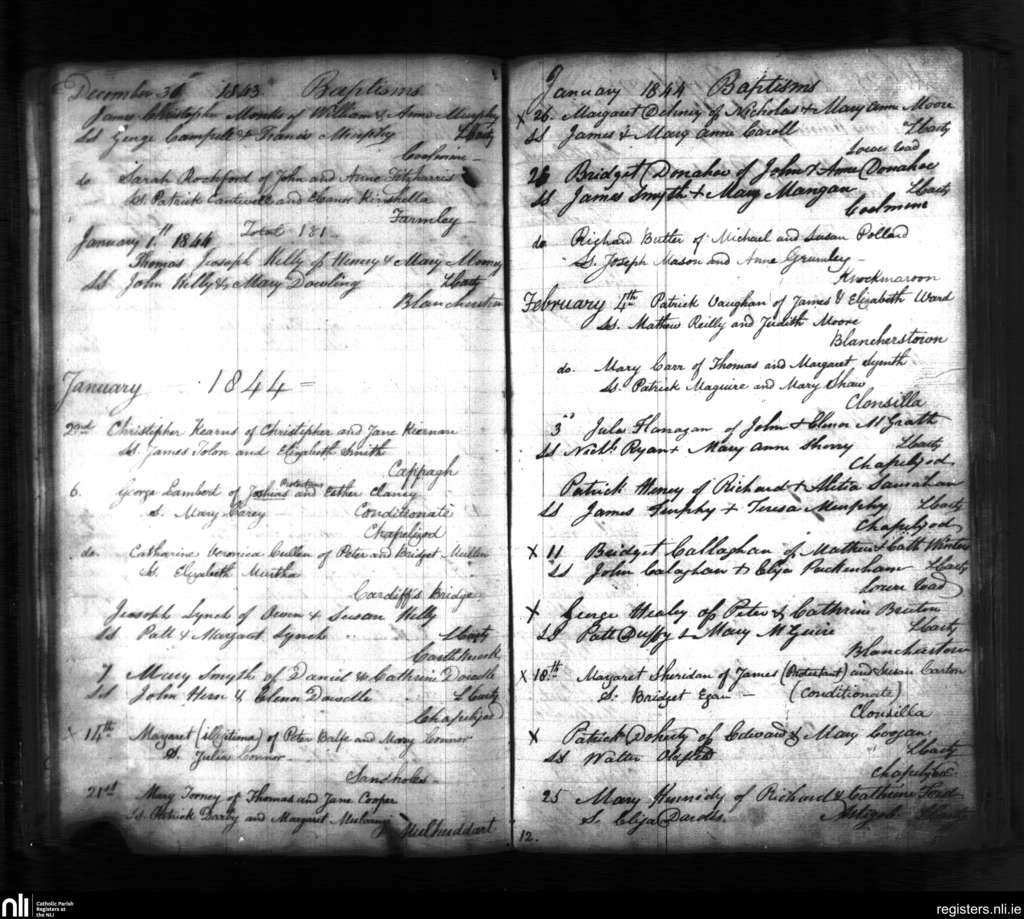 December 30th 1843 Baptisms
James Christopher Monks of William & Anne Murphy
SS George Campell & Francis Murphy LCarty
Coolmine
do Sarah Rochford of John and Anne Fitzharris
SS. Patrick Cantwell and Eleanor Kinshella
Farmley
Total 181
January 1st 1844
Thomas Joseph Kelly of Henery & Mary Mooney
SS John Kelly & Mary Dowling LCarty
Blancherstown
January 1844
Christopher Kearns of Christopher and Jane Kiernan
SS. James Tolon and Elizabeth Smith
Cappagh
6. George Lambert of Joshua Protestant and Esther Clancy
S. Mary Carey Conditionate
Chapelizod
do Catharine Veronica Cullen of Peter and Bridget Mullen
SS. Elizabeth Martha
Cardiff's Bridge
Joesoph Lynch of Owen & Susan Kelly
SS Patt & Margaret Lynch LCarty
Castleknock
7 Mary Smyth of Daniel & Cathrine Dowdle
SS John Hern & Elenor Dowdle L Carty
Chapelizod
x 14th Margaret (illegitima) of Peter Balfe and Mary Connor
S. Julia Connor
Sandholes
21st Mary Torney of Thomas and Jane Cooper
SS. Patrick Darby and Margaret
Mulhuddart
January 1844 Baptisms
x 26. Margaret of Nicholas & Mary Anne Moore
SS James & Mary Anne Caroll LCarty
Lower Road
Bridget Donahoe of John & Anne Donahoe
SS James Smyth & Mary Mangan LCarty
Coolmine
do Richard Butler of Michael and Susan Pollard
SS. Joseph Mason and Anne Grumley
Knockmaroon
February 4th Patrick Vaughan of James & Elizabeth Ward
SS. Mathew Reilly and Judith Moore
Blancherstown
do. Mary Carr of Thomas and Margaret Symth
SS. Patrick Maguire and Mary Shaw
Clonsilla
3 Julia Flanagan of John & Elenor McGrath
SS Nichs Ryan & Mary Anne Sherry LCarty
Chapelizod
Patrick Heney of Richard &
SS James Murphy & Teresa Murphy LCarty
Chapelizod
x 11 Bridget Callaghan of Mathew & Cath Winters
SS John Calaghan & Eliza Packenham LCarty
Lower Road
x George Healey of Peter & Cathrine Bruton
SS Patt Duffy & Mary McGuire LCarty
Blancherstown
x 18th Margaret Sheridan of James (Protestant) and Susan Carton
S. Bridget Egan (Conditionate)
Clonsilla
x Patrick Doherty of Edward & Mary Coogan
SS Walter LCarty
Chapelizod
25 Mary Kennidy of Richard & Cathrine Ford
S. Eliza Dowdle. Astigob. LCarty
12.
nli Catholic Parish
Registers at
the NLI
registers.nli.ie